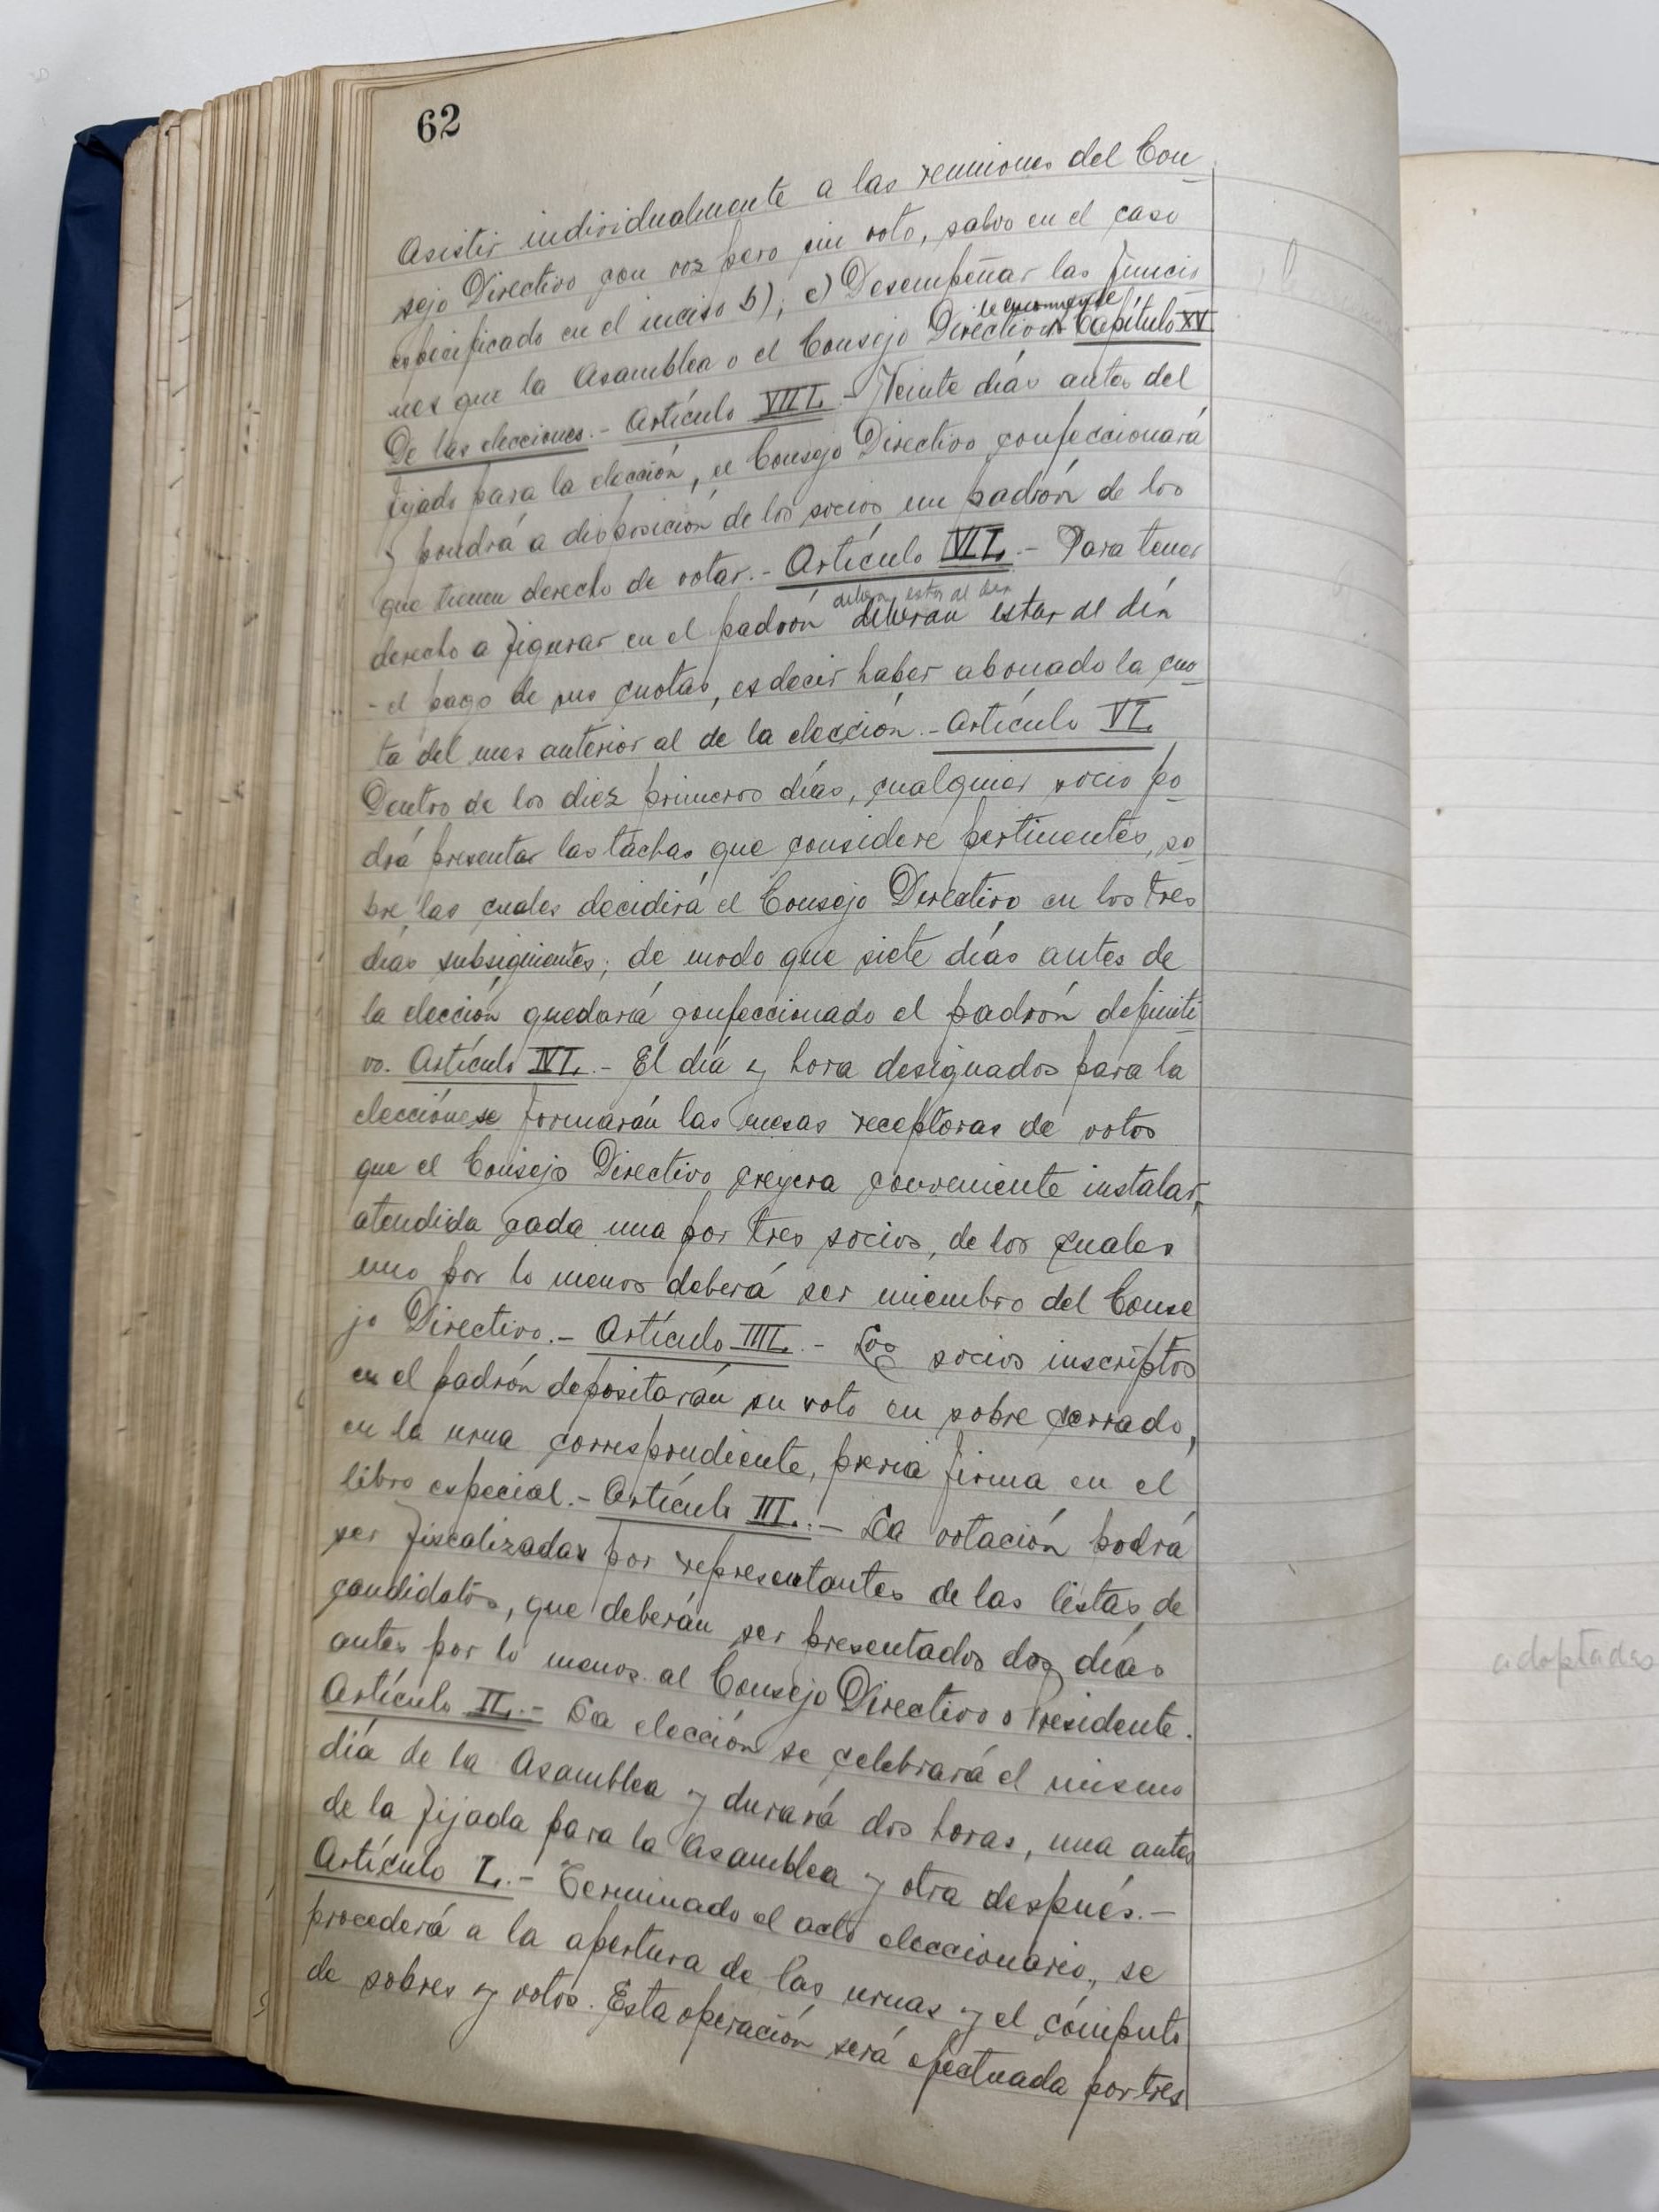 62
Asistir individualmente a las reuniones del Con-
sejo Directivo con voz pero sin voto, salvo en el caso
especificado en el inciso b); c) Desempeñar las funcio-
le encomiende
nes que la Asamblea o el Consejo Directivo Capítulo XV
De las elecciones.- Artículo VIII.- Veinte días antes del
fijado para la elección, el Consejo Directivo confeccionará
y pondrá a disposición de los socios un padrón de los
que tienen derecho de votar.- Artículo VII.- Para tener
deberán estar al día
derecho a figurar en el padrón deberán estar al día
- el pago de sus cuotas, es decir haber abonado la cuo-
ta del mes anterior al de la elección.- Artículo VI.
Dentro de los diez primeros días, cualquier socio po-
drá presentar las tachas que considere pertinentes, so-
bre las cuales decidirá el Consejo Directivo en los tres
días subsiguientes; de modo que siete días antes de
la elección quedará confeccionado el padrón definiti-
vo. Artículo IVI.- El día y hora designados para la
elección se formarán las mesas receptoras de votos
que el Consejo Directivo creyera conveniente instalar,
atendida cada una por tres socios, de los cuales
uno por lo menos deberá ser miembro del Conse
jo Directivo.- Artículo IIII.- Los socios inscriptos
en el padrón depositarán su voto en sobre cerrado,
en la urna correspondiente, previa firma en el
libro especial.- Artículo III.- La votación podrá
ser fiscalizadas por representantes de las listas de
candidatos, que deberán ser presentados dos días
antes por lo menos al Consejo Directivo o Presidente.
Artículo II.- La elección se celebrará el mismo
día de la Asamblea y durará dos horas, una antes
de la fijada para la Asamblea y otra después.-
Artículo I.- Terminado el acto eleccionario, se
procederá a la apertura de las urnas y el cómputo
de sobres y votos. Esta operación será efectuada por tres
adoptadas